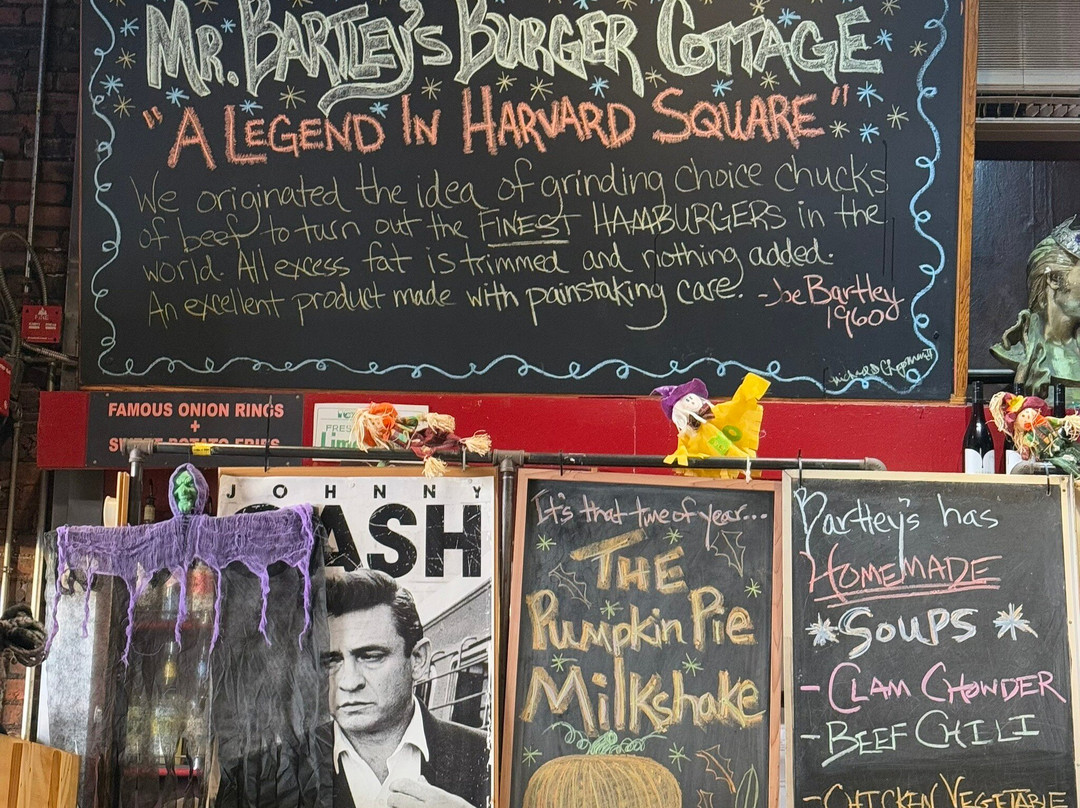 Mr. Bartley's Burger Cottage
"A Legend In Harvard Square"
We originated the idea of grinding choice chucks
of beef to turn out the FINEST HAMBURGERS in the
world. All excess fat is trimmed and nothing added.
An excellent product made with painstaking care. -Joe Bartley
1960
FAMOUS ONION RINGS
+
SWEET POTATO FRIES
FRES
JOHNNY
CASH
It's that time of year...
The
Pumpkin Pie
Milkshake
Bartley's has
Homemade
Soups
- Clam Chowder
- Beef Chili
- Chicken Vegetable